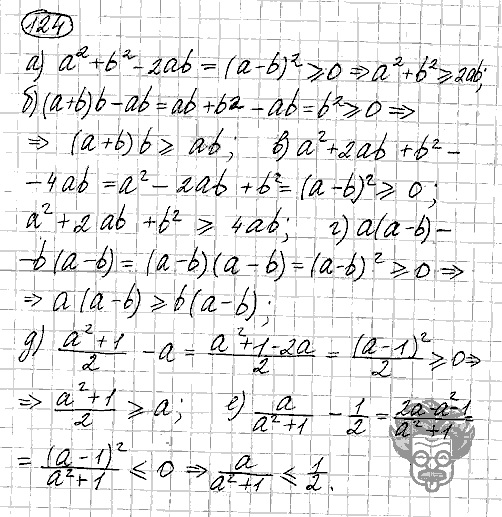 124
а) a² + b² - 2ab = (a-b)² ⩾ 0 ⇒ a² + b² ⩾ 2ab;
б) (a+b)b - ab = ab + b2 - ab = b² ⩾ 0 ⇒
⇒ (a+b)b ⩾ ab; в) a² + 2ab + b² -
- 4ab = a² - 2ab + b² = (a-b)² ⩾ 0;
a² + 2ab + b² ⩾ 4ab; г) a(a-b) -
- b(a-b) = (a-b)(a-b) = (a-b)² ⩾ 0 ⇒
⇒ a(a-b) ⩾ b(a-b);
д) (a²+1)/2 - a = (a²+1-2a)/2 = (a-1)²/2 ⩾ 0 ⇒
⇒ (a²+1)/2 ⩾ a; е) a/(a²+1) - 1/2 = (2a-a²-1)/(a²+1) =
= (a-1)²/(a²+1) ⩽ 0 ⇒ a/(a²+1) ⩽ 1/2.